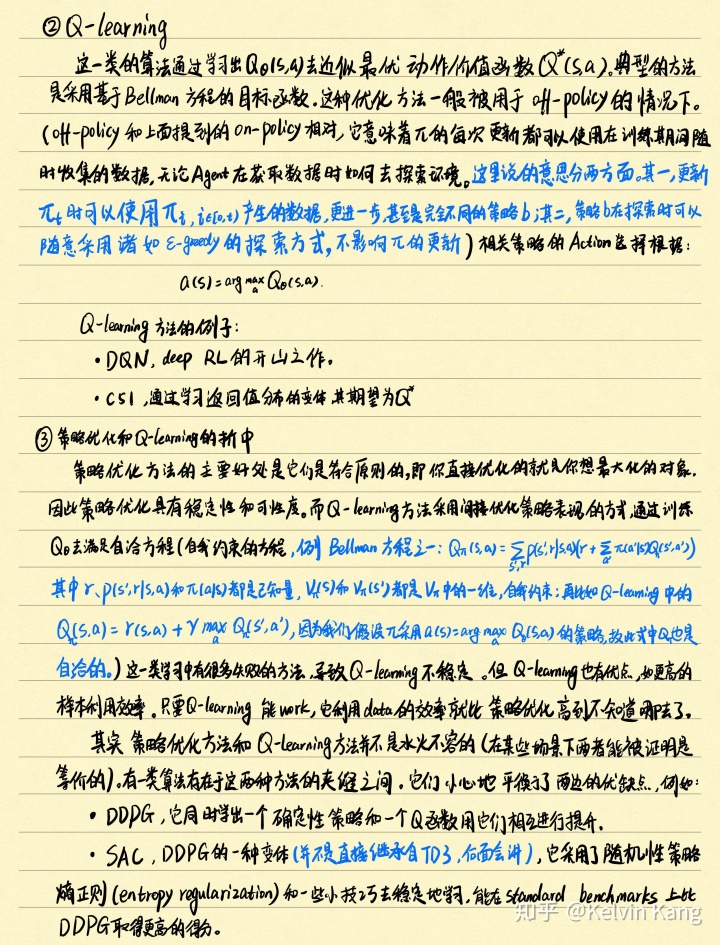 ② Q-learning
这一类的算法通过学习出Qθ(s,a)去近似最优动作价值函数Q*(s,a)。典型的方法
是采用基于Bellman方程的目标函数。这种优化方法一般被用于off-policy的情况下。
(off-policy和上面提到的on-policy相对,它意味着π的每次更新都可以使用在训练期间随
时收集的数据,无论Agent在获取数据时如何去探索环境。这里说的意思分两方面。其一,更新
πt时可以使用πi, i∈[0,t) 产生的数据,更进一步,甚至是完全不同的策略b;其二,策略b在探索时可以
随意采用诸如ε-greedy的探索方式,不影响π的更新)相关策略的Action选择根据:
a(s)=arg max_a Qθ(s,a).
Q-learning方法的例子:
• DQN, deep RL的开山之作。
• C51,通过学习返回值分布的变体,其期望为Q*
③ 策略优化和Q-learning的折中
策略优化方法的主要好处是它们是符合原则的,即你直接优化的就是你想最大化的对象.
因此策略优化具有稳定性和可性度。而Q-learning方法采用间接优化策略表现的方式,通过训练
Qθ去满足自洽方程(自我约束的方程,例 Bellman方程之一: Qπ(s,a)=Σ_{s',r} p(s',r|s,a)(r+Σ_{a'} π(a'|s')Q(s',a'))
其中r、p(s',r|s,a)和π(a|s)都是已知量, Vπ(s)和Vπ(s')都是Vπ中的一维,自我约束;再比如Q-learning中的
Qπ(s,a)=r(s,a)+γ max_{a'} Qπ(s',a'),因为我们假设π采用a(s)=arg max_a Qθ(s,a)的策略,故此式中Qπ也是
自洽的。)这一类学习中有很多失败的方法,导致Q-learning不稳定。但Q-learning也有优点,如更高的
样本利用效率。只要Q-learning能work,它利用data的效率就比策略优化高到不知道哪去了。
其实策略优化方法和Q-learning方法并不是水火不容的(在某些场景下两者能被证明是
等价的)。有一类算法存在于这两种方法的夹缝之间,它们小心地平衡了两边的优缺点,例如:
• DDPG,它同时学出一个确定性策略和一个Q函数用它们相互进行提升.
• SAC, DDPG的一种变体(并不是直接继承自TD3,后面会讲),它采用了随机性策略
熵正则(entropy regularization)和一些小技巧去稳定地学习,能在standard benchmarks上比
DDPG取得更高的得分。
知乎 @Kelvin Kang